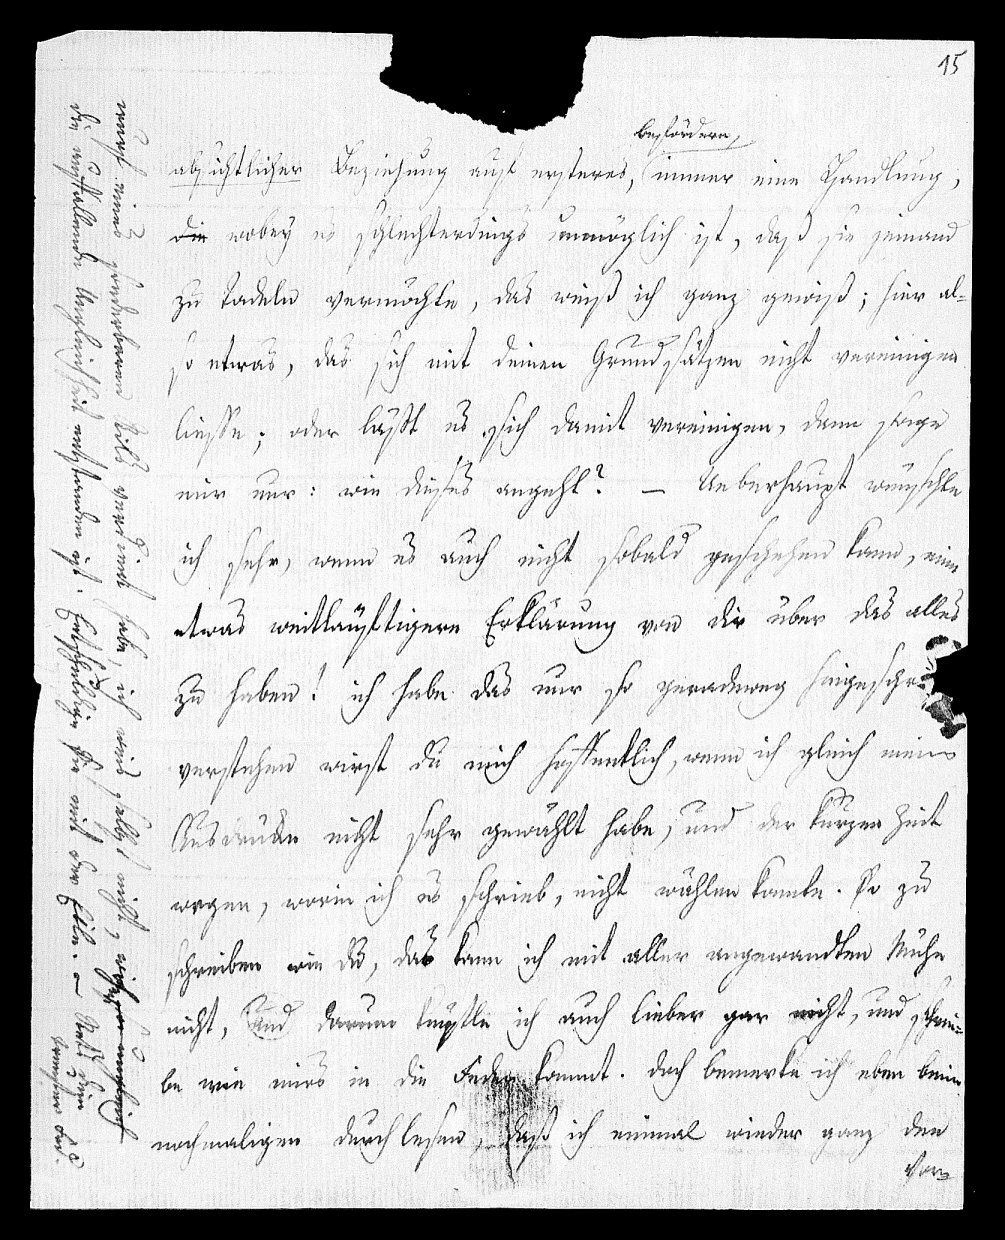 15
befördern,
absichtlicher Beziehung auf ersteres, immer eine Handlung,
die wobey es schlechterdings unmöglich ist, daß sie jemand
zu tadeln vermöchte, das weiß ich ganz gewiß; hier al-
so etwas, das sich mit deinen Grundsätzen nicht vereinigen
liesse; oder läßt es sich damit vereinigen, dann sage
mir nur: wie dieses angeht? — Ueberhaupt wünschte
ich sehr, wenn es auch nicht sobald geschehen kann, eine
etwas weitläuftigere Erklärung von dir über das alles
zu haben! ich habe das nur so geradeweg hingeschr
verstehen wirst du mich hoffentlich, wenn ich gleich meine
Ausdrücke nicht sehr gewählt habe, und der kurzen Zeit
wegen, worin ich es schrieb, nicht wählen konnte. So zu
schreiben wie du, das kann ich mit aller angewandten Mühe
nicht, und darum künstle ich auch lieber gar nicht, und schrei-
be wie mirs in die Feder kommt. Doch bemerke ich eben beim
nochmaligen durchlesen, daß ich einmal wieder ganz den
Vor-
habe, ich weiß selbst nicht,
die auffallende Ungleichheit entstanden ist. Entschuldige sie mit der Eile. —